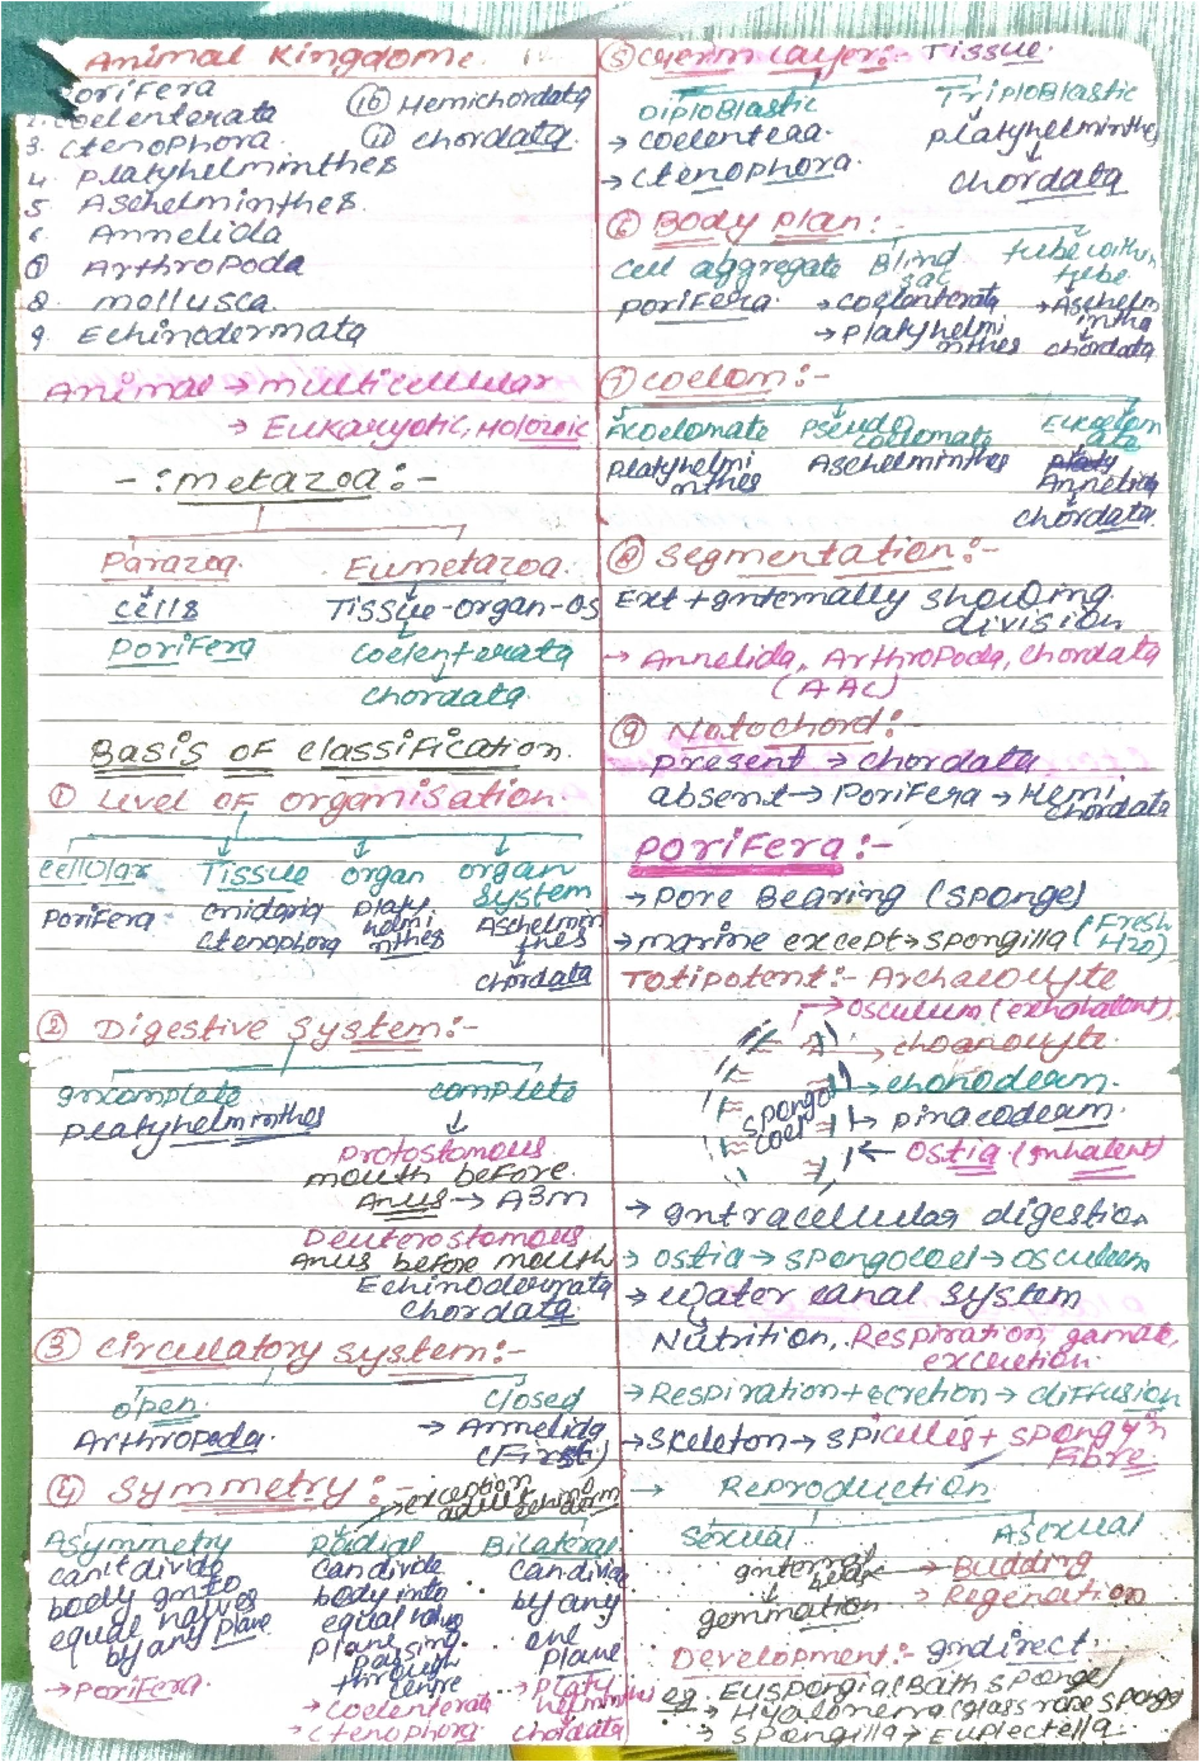 Animal Kingdom.
Porifera
2. Coelenterate
3. Ctenophora.
4. Platyhelminthes
5. Aschelminthes.
6. Annelida
⑦ Arthropoda
8. mollusca.
9. Echinodermata
⑩ Hemichordata
⑪ chordata.
Animal → multicellular
→ Eukaryotic, Holozoic
- : metazoa : -
Parazoa. Eumetazoa.
cells Tissue-organ-OS
Porifera Coelenterata
chordata.
Basis of classification.
① Level of organisation.
cellular Tissue organ organ system
Porifera cnidaria ctenophora platyhelminthes Aschelminthes
chordata
② Digestive System:-
Incomplete complete
platyhelminthes
protostomous
mouth before.
Anus → A3m
Deuterostomous
Anus before mouth
Echinodermata
chordata.
③ circulatory system:-
open. closed
Arthropoda. → Annelida
(First)
④ Symmetry:- → exception adult echinoderm
Asymmetry Radial Bilateral
can't divide body into equal halves by any plane
→ Porifera.
can divide body into equal halves plane passing through centre
→ Coelenterate
→ Ctenophora.
can divide by any one plane
→ platyhelminthes
chordata
⑤ Germ Layer:- Tissue.
Diploblastic Triploblastic
→ coelenteaa. platyhelminthes
→ ctenophora. chordata
⑥ Body plan:-
cell aggregate Blind sac tube within tube
Porifera. → coelenterata → Aschelmintha
→ Platyhelminthes chordata
⑦ coelom:-
Acoelomate Pseudocoelomate Eucoelomate
platyhelminthes Aschelminthes Annelida
chordata.
⑧ Segmentation:-
Ext + Internally showing.
division
→ Annelida, Arthropoda, chordata
(AAC)
⑨ Notochord:-
present → chordata
absent → Porifera → Hemichordata
Porifera:-
→ pore Bearing (sponge)
→ marine except → spongilla (Fresh H2O)
Totipotent:- Archaeocyte
→ osculum (exhalent).
→ choanocyte.
spongocoel
→ chonodeam.
→ pinacodeam.
← ostia. (Inhalent)
→ Intracellular digestion
→ ostia → spongocoel → osculum
→ water canal system
Nutrition, Respiration, gamate, excretion.
→ Respiration + ecretion → diffusion
→ skeleton → spicules + spongin Fibre
→ Reproduction
Sexual Asexual
→ Budding
gemmation → Regenration
Development:- Indirect.
eg. Euspongia (Bath sponge)
→ Hyalonema (glass rope sponge)
→ spongilla → Euplectella.